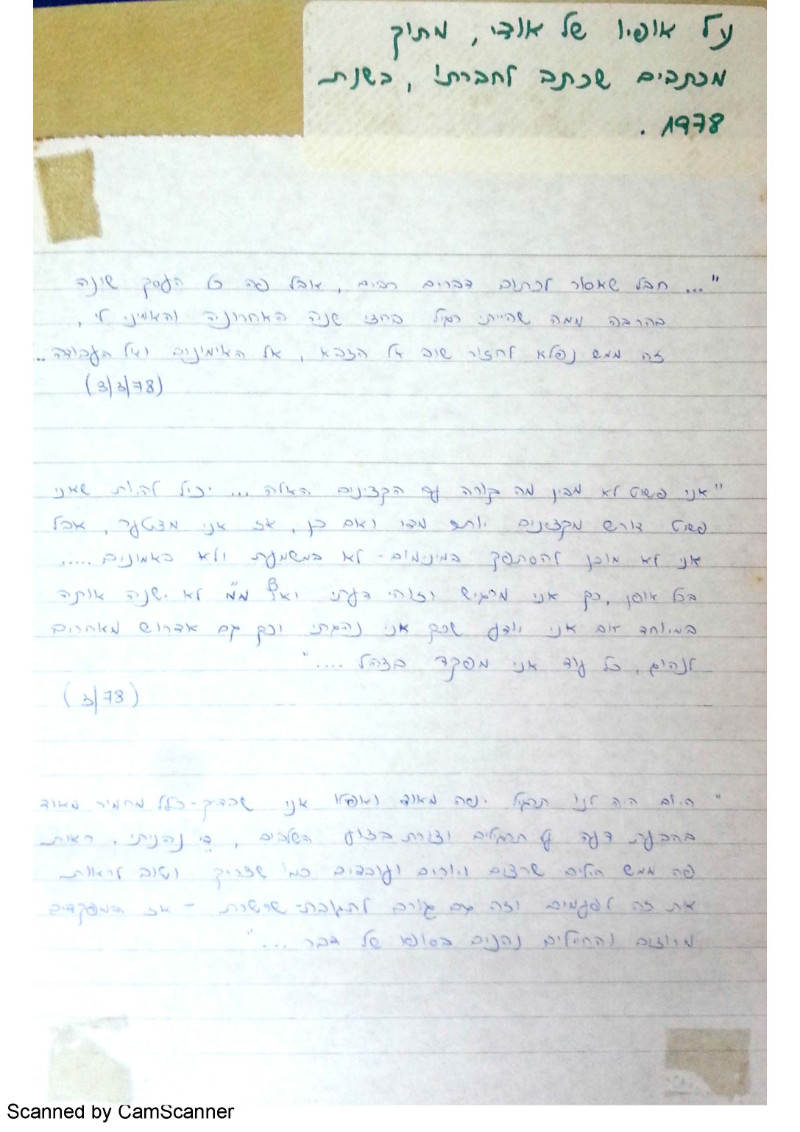 על אופיו של אודי, מתוך
מכתבים שכתב לחברתו, בשנת
1978.
"... חבל שאסור לכתוב דברים רבים, אבל פה כל העסק שונה
בהרבה ממה שהייתי רגיל בחצי שנה האחרונה והאמיני לי,
זה ממש נפלא לחזור שוב אל הצבא, אל האימונים ואל העבודה..
(3/3/78)
"אני פשוט לא מבין מה קורה עם הקצינים האלה... יכול להיות שאני
פשוט דורש מקצינים יותר מדי ואם כן, אז אני מצטער, אבל
אני לא מוכן להסתפק במינימום - לא במשמעת ולא באמונים.....
בכל אופן, כך אני מרגיש וזוהי דעתי ואף מ"מ לא ישנה אותה
במיוחד אם אני יודע שכך אני נהגתי וכך גם אדרוש מאחרים
לנהוג, כל עוד אני מפקד בצהל ...."
(3/78)
"היום היה לנו תרגיל יפה מאוד ואפילו אני שבדרך-כלל מחמיר מאוד
בהבעת דעה על תרגילים וצורת בצוע השלבים, די נהניתי. ראית
פה ממש חיילים שרצים ויורים ועובדים כמו שצריך וטוב לראות
את זה לפעמים וזה גם גורם לתגובת-שרשרת - אז המפקדים
מרוצים והחיילים נהנים בסופו של דבר ..."
Scanned by CamScanner